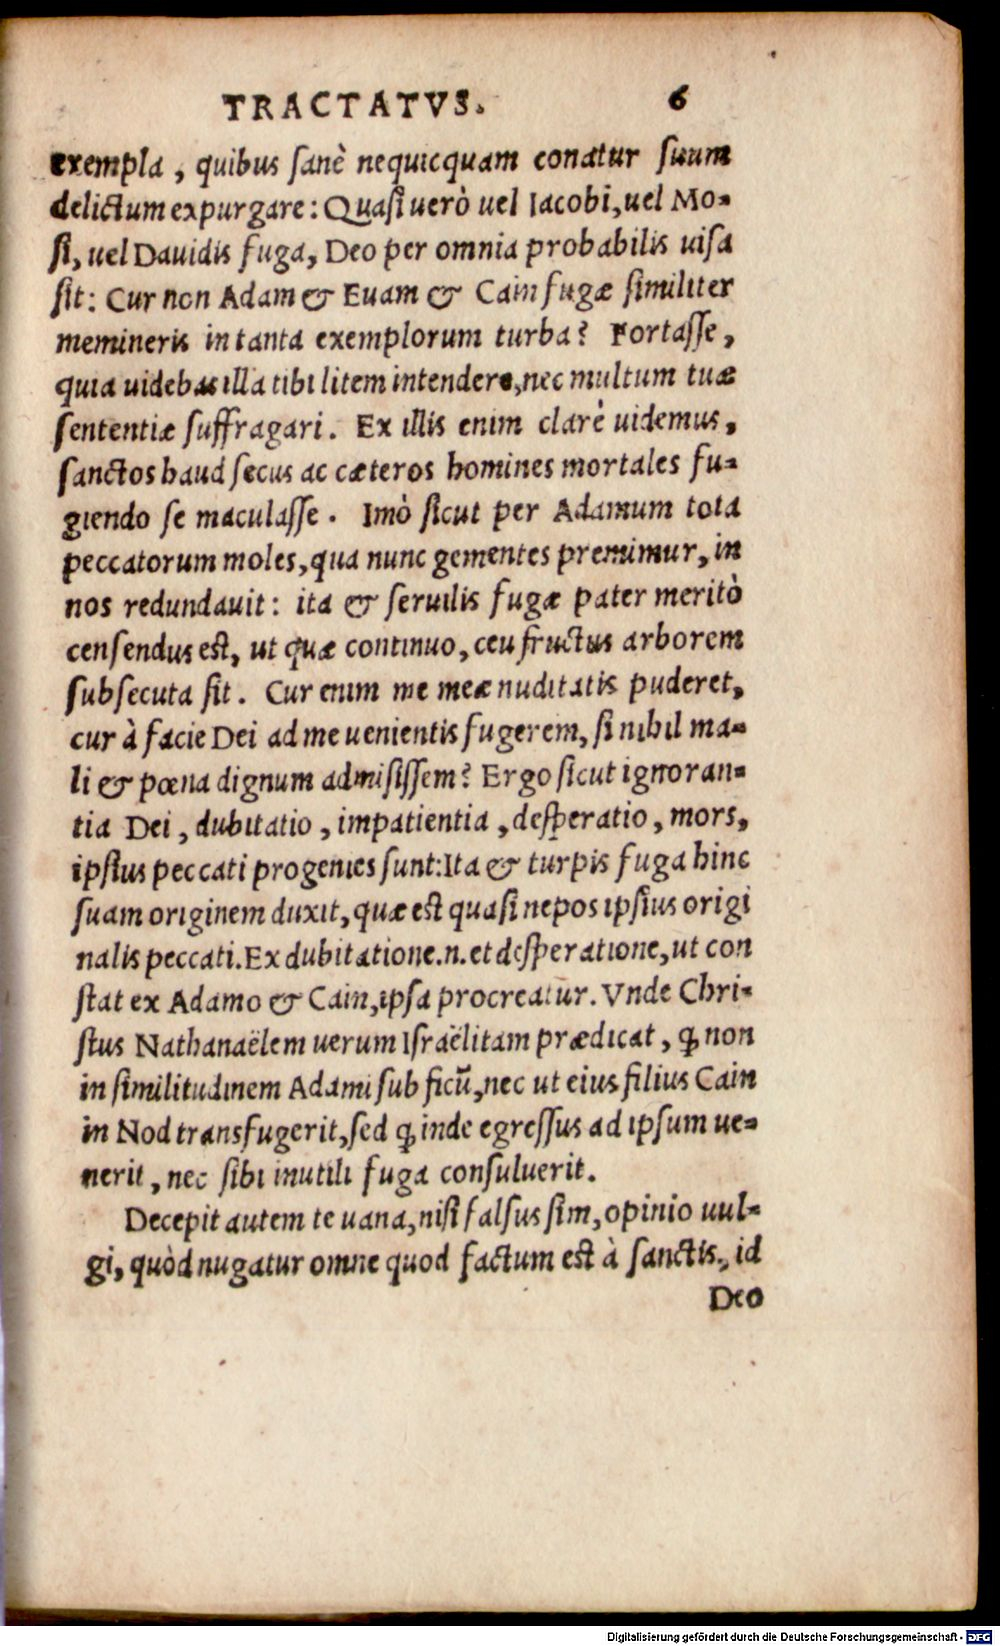 TRACTATVS. 6
exempla, quibus sanè nequicquam conatur suum
delictum expurgare: Quasi uerò uel Iacobi, uel Mo-
si, uel Dauidis fuga, Deo per omnia probabilis uisa
sit: Cur non Adam & Euam & Cain fugæ similiter
memineris in tanta exemplorum turba? Fortasse,
quia uidebas illa tibi litem intendere, nec multum tuæ
sententiæ suffragari. Ex illis enim clarè uidemus,
sanctos haud secus ac cæteros homines mortales fu-
giendo se maculasse. Imò sicut per Adamum tota
peccatorum moles, qua nunc gementes premimur, in
nos redundauit: ita & seruilis fugæ pater meritò
censendus est, ut quæ continuo, ceu fructus arborem
subsecuta sit. Cur enim me meæ nuditatis puderet,
cur à facie Dei ad me uenientis fugerem, si nihil ma-
li & pœna dignum admisissem? Ergo sicut ignoran-
tia Dei, dubitatio, impatientia, desperatio, mors,
ipsius peccati progenies sunt: Ita & turpis fuga hinc
suam originem duxit, quæ est quasi nepos ipsius origi
nalis peccati. Ex dubitatione.n. et desperatione, ut con
stat ex Adamo & Cain, ipsa procreatur. Vnde Chri-
stus Nathanaëlem uerum Israëlitam prædicat, ꝙ non
in similitudinem Adami sub ficū, nec ut eius filius Cain
in Nod transfugerit, sed ꝙ inde egressus ad ipsum ue-
nerit, nec sibi inutili fuga consuluerit.
Decepit autem te uana, nisi falsus sim, opinio uul-
gi, quòd nugatur omne quod factum est à sanctis, id
Deo
Digitalisierung gefördert durch die Deutsche Forschungsgemeinschaft - DFG